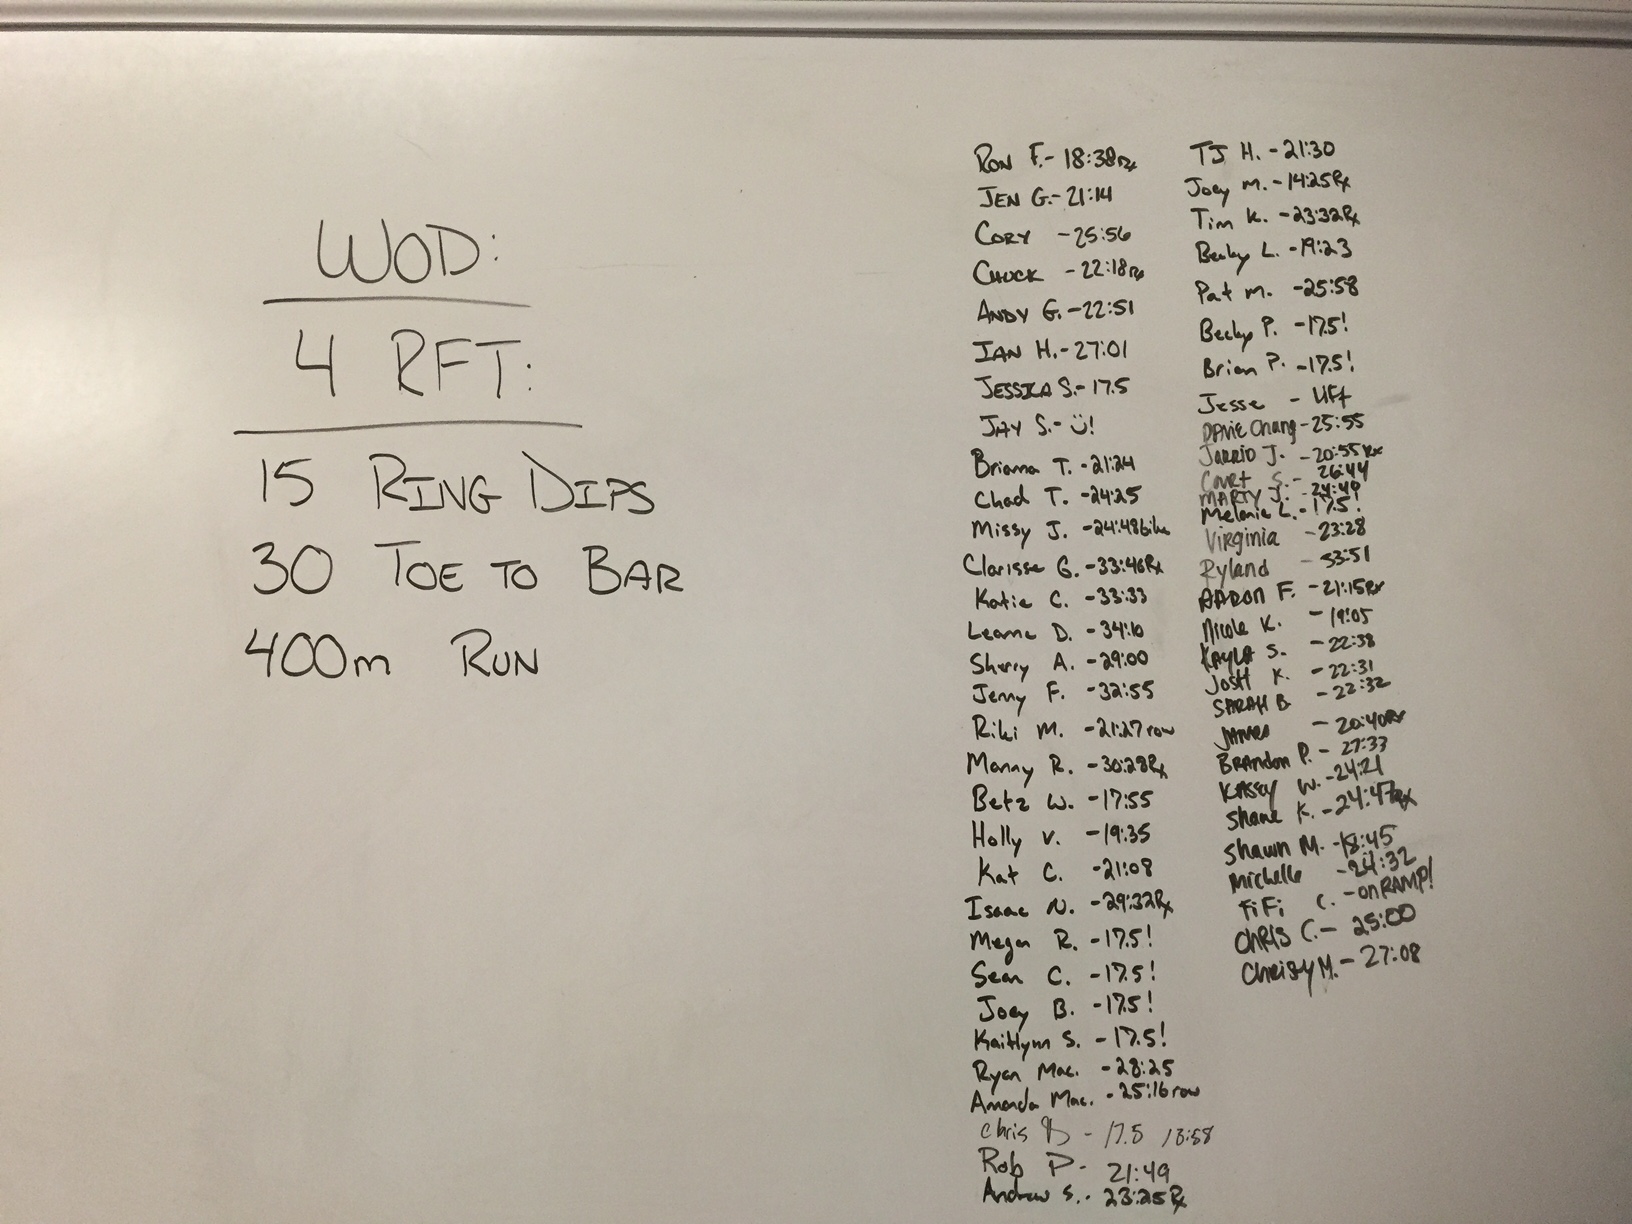 WOD:
4 RFT:
15 RING DIPS
30 TOE TO BAR
400m RUN
RON F.- 18:38Rx
JEN G.- 21:14
CORY - 25:56
CHUCK - 22:18Rx
ANDY G. - 22:51
IAN H. - 27:01
JESSICA S.- 17.5
JAY S. - ü!
Briana T. - 21:24
Chad T. - 24:25
Missy J. - 24:48bike
Clarisse G. - 33:46Rx
Katie C. - 33:33
Leanne D. - 34:10
Sherry A. - 29:00
Jenny F. - 32:55
Riki M. - 21:27 row
Manny R. - 30:28Rx
Betz W. - 17:55
Holly V. - 19:35
Kat C. - 21:08
Isaac N. - 29:32Rx
Megan R. - 17.5!
Sean C. - 17.5!
Joey B. - 17.5!
Kaitlynn S. - 17.5!
Ryan Mac. - 28:25
Amanda Mac. - 25:16 row
Chris B - 17.5 13:58
Rob P - 21:49
Andrew S. - 23:25Rx
TJ H. - 21:30
Joey M. - 14:25Rx
Tim K. - 23:32Rx
Becky L. - 19:23
Pat M. - 25:58
Becky P. - 17.5!
Brian P. - 17.5!
Jesse - Lift
DAVIE Chang - 25:55
JARRID J. - 20:55Rx
Court S. - 26:44
MARTY J. - 24:49
Melanie L. - 17.5!
Virginia - 23:28
Ryland - 33:51
AARON F. - 21:15Rx
Nicole K. - 19:05
KAYLA S. - 22:38
JOSH K. - 22:31
SARAH B - 22:32
JAMES - 20:40Rx
BRANdon P. - 27:33
KASEY W. - 24:21
Shane K. - 24:47Rx
Shawn M. - 18:45
Michelle - 24:32
FiFi C. - on RAMP!
CHRIS C. - 25:00
Christy M. - 27:08